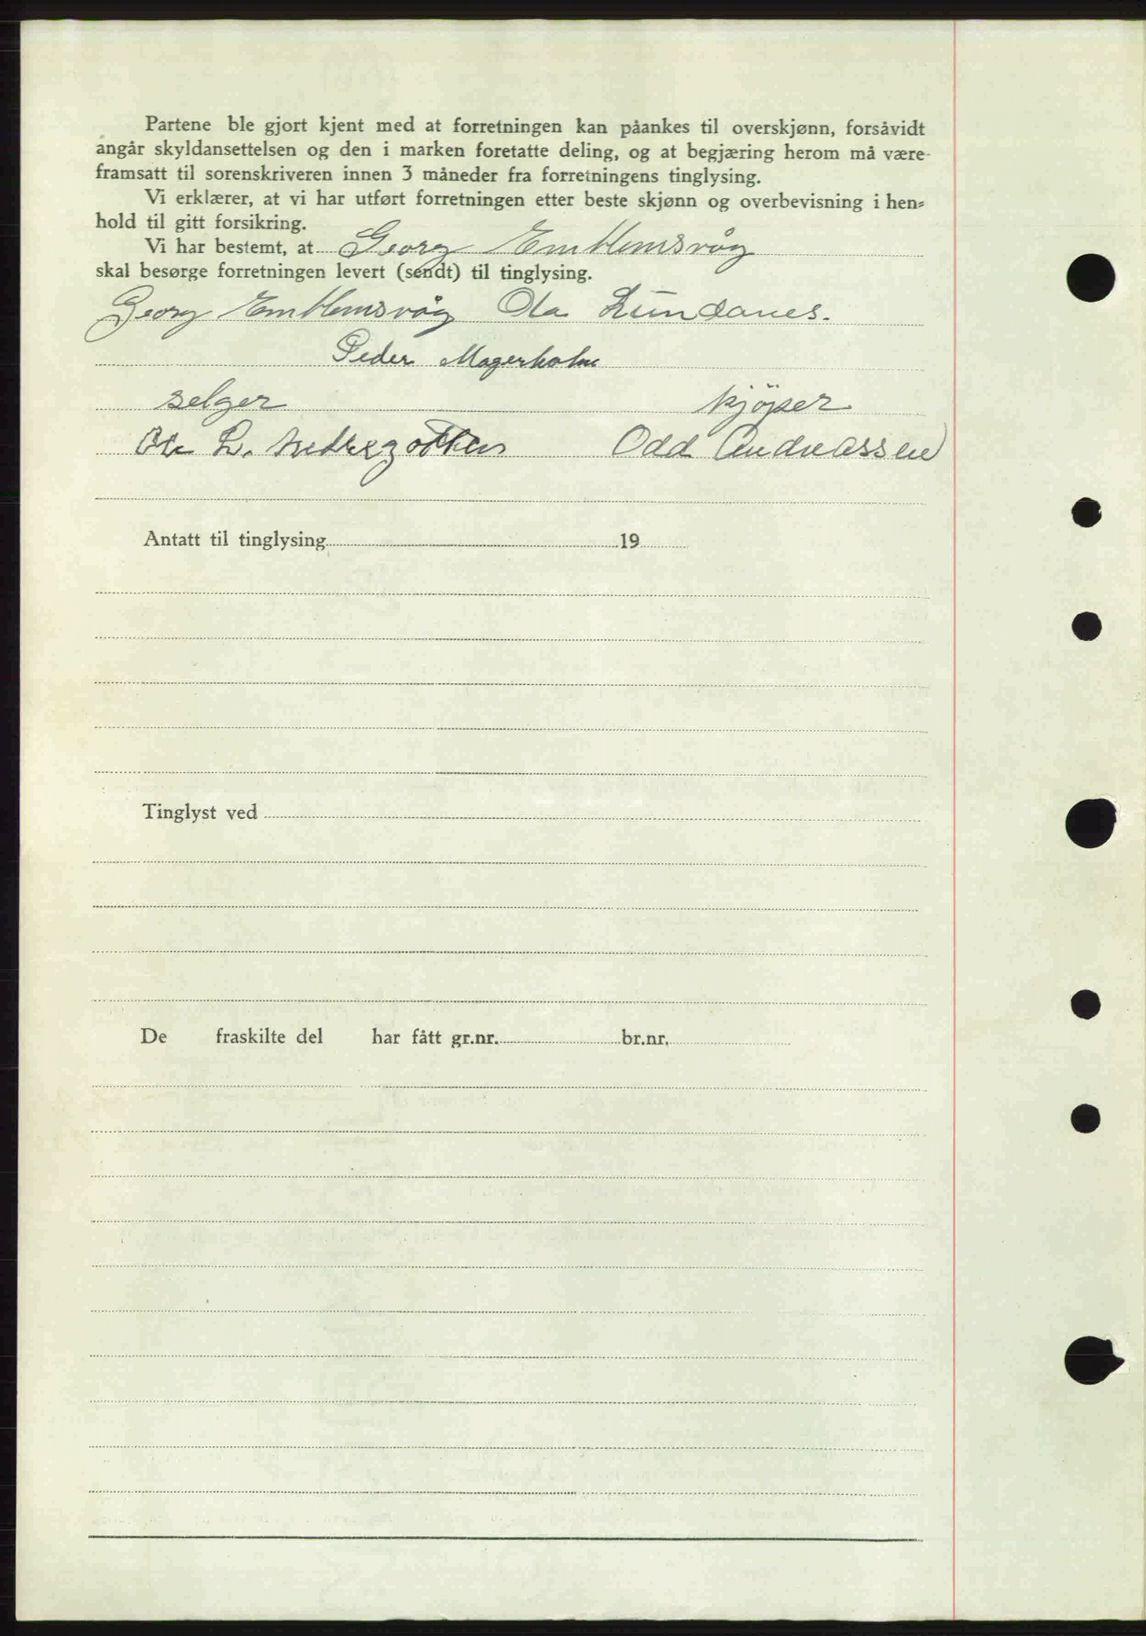 Partene ble gjort kjent med at forretningen kan påankes til overskjønn, forsåvidt
angår skyldansettelsen og den i marken foretatte deling, og at begjæring herom må være
framsatt til sorenskriveren innen 3 måneder fra forretningens tinglysing.
Vi erklærer, at vi har utført forretningen etter beste skjønn og overbevisning i hen-
hold til gitt forsikring.
Vi har bestemt, at Georg Emblemsvåg
skal besørge forretningen levert (sendt) til tinglysing.
Georg Emblemsvåg Ola Lundanes.
Peder Magerholm
selger kjøper
L. Odd Andreassen
Antatt til tinglysing 19
Tinglyst ved
De fraskilte del har fått gr.nr. br.nr.